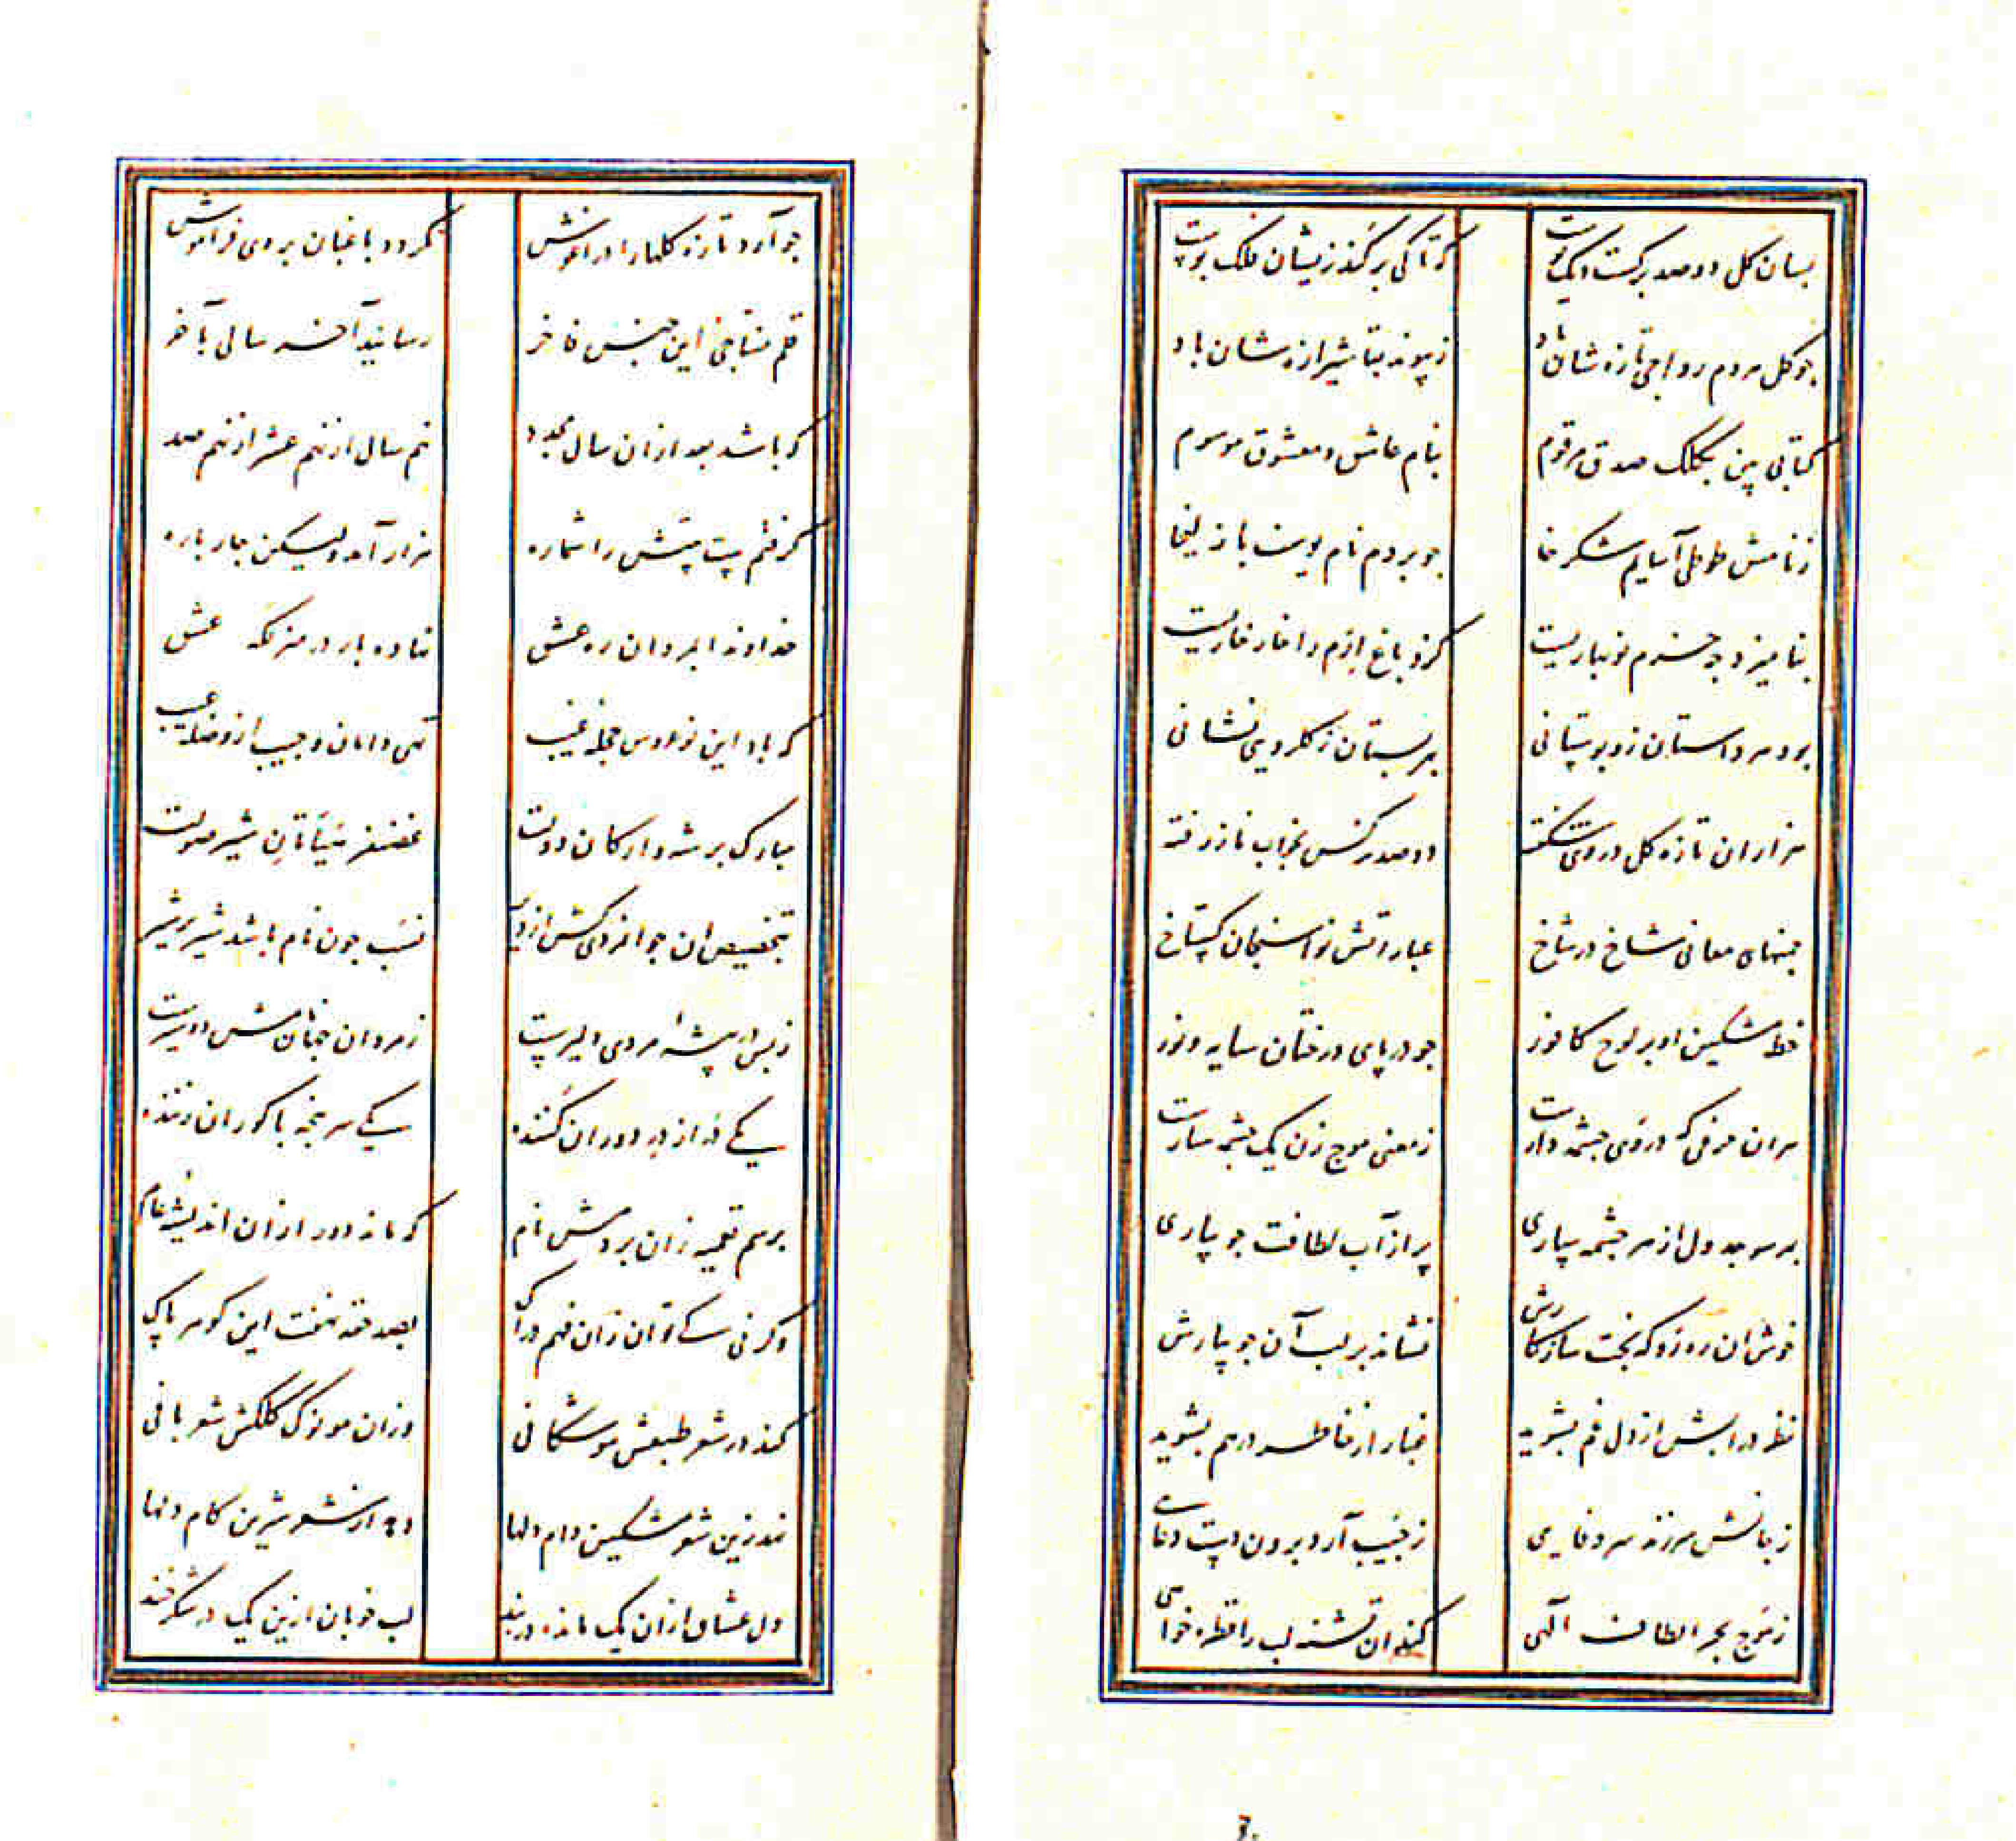 بسان گل دو صد برگست و یک پوست که تا کی برکند زیشان فلک پوست
چو گل هر دم رواجی تازه شان باد ز پیوند بقا شیرازه شان باد
کتابی بین بکلک صدق مرقوم بنام عاشق و معشوق موسوم
ز نامش طوطی آسایم شکرخا چو بردم نام یوسف با زلیخا
بنامیزد چه خرم نوبهاریست کزو باغ ارم را خار خاریست
بود هر داستان زو بوستانی بهر بستان ز گلرویی نشانی
هزاران تازه گل در وی شکفته دو صد نرگس بخواب ناز رفته
چمنهای معانی شاخ در شاخ عبارتش نواسنجان گستاخ
خط مشکین او بر لوح کافور چو در پای درختان سایه و نور
هران حرفی که در وی چشمه دارست ز معنی موج زن یک چشمه سارست
بهر سو جدول از هر چشمه ساری پر از آب لطافت جویباری
خوش ان رهرو که بخت سازگارش نشاند بر لب آن جویبارش
نظر در ابش از دل غم بشوید غبار از خاطر درهم بشوید
ز جانش سر زند سر وفایی ز جیب آرد برون دست دعایی
ز موج بحر الطاف الهی کند ان تشنه لب را قطره خواهی
چو آرد تازه گلها را در اغوش نگردد باغبان بر وی فراموش
قلم نساجی این جنس فاخر رسانید آخر سالی بآخر
که باشد بعد ازان سال مجدد نهم سال از نهم عشر از نهم صد
گرفتم بیت بیتش را شماره هزار آمد ولیکن چار باره
خداوندا بمردان ره عشق فتاده بار در منزلگه عشق
که باد این نوعروس حجله غیب تهی دامان و جیب از وصمه عیب
مبارک بر شه و ارکان دولت غضنفر هیأتان شیر صولت
بتخصیص ان جوانمردی کش از دیر نسب چون نام باشد شیر بر شیر
ز بس در بیشه مردی دلیرست ز مردان جهان شس دو شیرست
یکی در از در دوران کننده یکی سرپنجه با گوران زننده
برسم تعمیه زان بردمش نام که ماند دور ازان اندیشه عام
وگرنی کی توان زان فهم دراک بصد حقه نهفت این گوهر پاک
کند در شعر طبعش موشکافی وزان مو نوک کلکش شعر بافی
نهد زین شعر مشکین دام دلها دهد از شعر شیرین کام دلها
دل عشاق ازان یک مانده در بند لب خوبان ازین یک در شکرخند